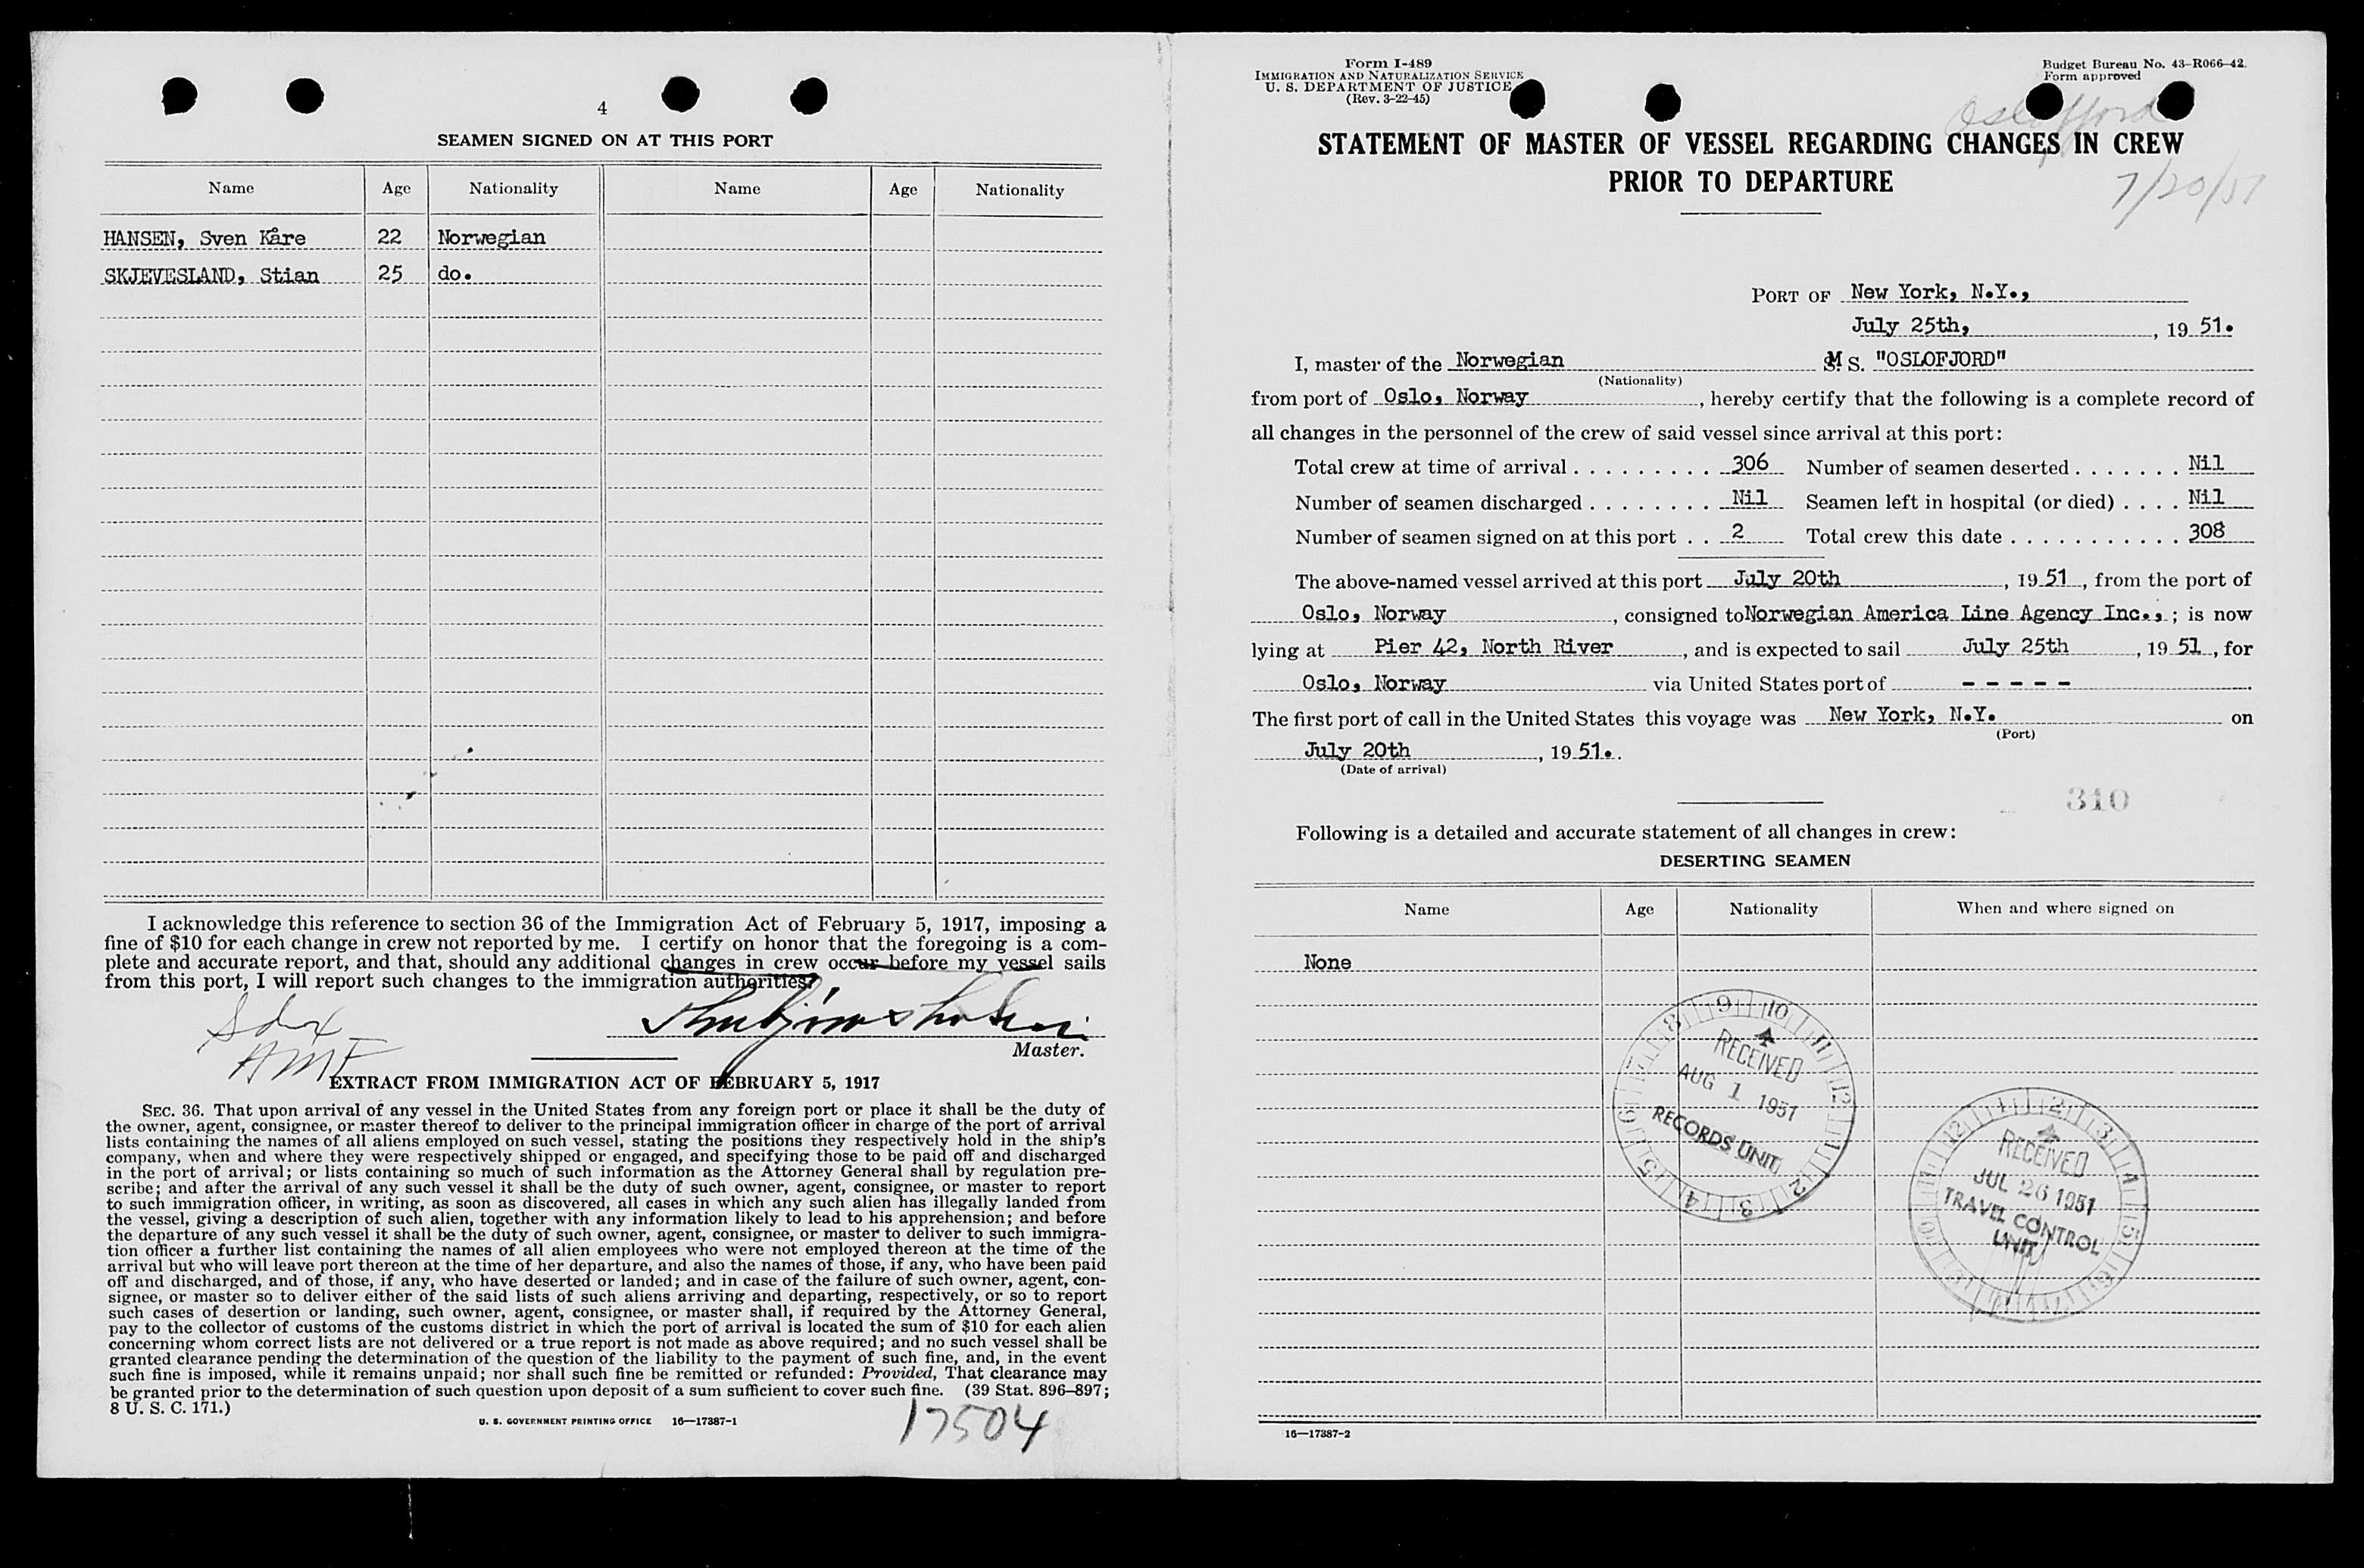 4
SEAMEN SIGNED ON AT THIS PORT
Name Age Nationality Name Age Nationality
HANSEN, Sven Kåre 22 Norwegian
SKJEVESLAND, Stian 25 do.
I acknowledge this reference to section 36 of the Immigration Act of February 5, 1917, imposing a
fine of $10 for each change in crew not reported by me. I certify on honor that the foregoing is a com-
plete and accurate report, and that, should any additional changes in crew occur before my vessel sails
from this port, I will report such changes to the immigration authorities.
Master.
EXTRACT FROM IMMIGRATION ACT OF FEBRUARY 5, 1917
SEC. 36. That upon arrival of any vessel in the United States from any foreign port or place it shall be the duty of
the owner, agent, consignee, or master thereof to deliver to the principal immigration officer in charge of the port of arrival
lists containing the names of all aliens employed on such vessel, stating the positions they respectively hold in the ship's
company, when and where they were respectively shipped or engaged, and specifying those to be paid off and discharged
in the port of arrival; or lists containing so much of such information as the Attorney General shall by regulation pre-
scribe; and after the arrival of any such vessel it shall be the duty of such owner, agent, consignee, or master to report
to such immigration officer, in writing, as soon as discovered, all cases in which any such alien has illegally landed from
the vessel, giving a description of such alien, together with any information likely to lead to his apprehension; and before
the departure of any such vessel it shall be the duty of such owner, agent, consignee, or master to deliver to such immigra-
tion officer a further list containing the names of all alien employees who were not employed thereon at the time of the
arrival but who will leave port thereon at the time of her departure, and also the names of those, if any, who have been paid
off and discharged, and of those, if any, who have deserted or landed; and in case of the failure of such owner, agent, con-
signee, or master so to deliver either of the said lists of such aliens arriving and departing, respectively, or so to report
such cases of desertion or landing, such owner, agent, consignee, or master shall, if required by the Attorney General,
pay to the collector of customs of the customs district in which the port of arrival is located the sum of $10 for each alien
concerning whom correct lists are not delivered or a true report is not made as above required; and no such vessel shall be
granted clearance pending the determination of the question of the liability to the payment of such fine, and, in the event
such fine is imposed, while it remains unpaid; nor shall such fine be remitted or refunded: Provided, That clearance may
be granted prior to the determination of such question upon deposit of a sum sufficient to cover such fine. (39 Stat. 896–897;
8 U. S. C. 171.)
U. S. GOVERNMENT PRINTING OFFICE 16—17387-1
17504
Form I-489
IMMIGRATION AND NATURALIZATION SERVICE
U. S. DEPARTMENT OF JUSTICE
(Rev. 3-22-45)
Budget Bureau No. 43-R066-42.
Form approved
Oslofjord
STATEMENT OF MASTER OF VESSEL REGARDING CHANGES IN CREW
PRIOR TO DEPARTURE
7/20/51
PORT OF New York, N.Y.,
July 25th, , 19 51.
I, master of the Norwegian M S. "OSLOFJORD"
(Nationality)
from port of Oslo, Norway , hereby certify that the following is a complete record of
all changes in the personnel of the crew of said vessel since arrival at this port:
Total crew at time of arrival . . . . . . . . . 306 Number of seamen deserted . . . . . . . Nil
Number of seamen discharged . . . . . . . . Nil Seamen left in hospital (or died) . . . . Nil
Number of seamen signed on at this port . . 2 Total crew this date . . . . . . . . . . . 308
The above-named vessel arrived at this port July 20th , 19 51 , from the port of
Oslo, Norway , consigned to Norwegian America Line Agency Inc., ; is now
lying at Pier 42, North River , and is expected to sail July 25th , 19 51 , for
Oslo, Norway via United States port of - - - - - .
The first port of call in the United States this voyage was New York, N.Y. on
(Port)
July 20th , 19 51. .
(Date of arrival)
310
Following is a detailed and accurate statement of all changes in crew:
DESERTING SEAMEN
Name Age Nationality When and where signed on
None
RECEIVED
AUG 1 1951
RECORDS UNIT
RECEIVED
JUL 26 1951
TRAVEL CONTROL
UNIT
16—17387-2